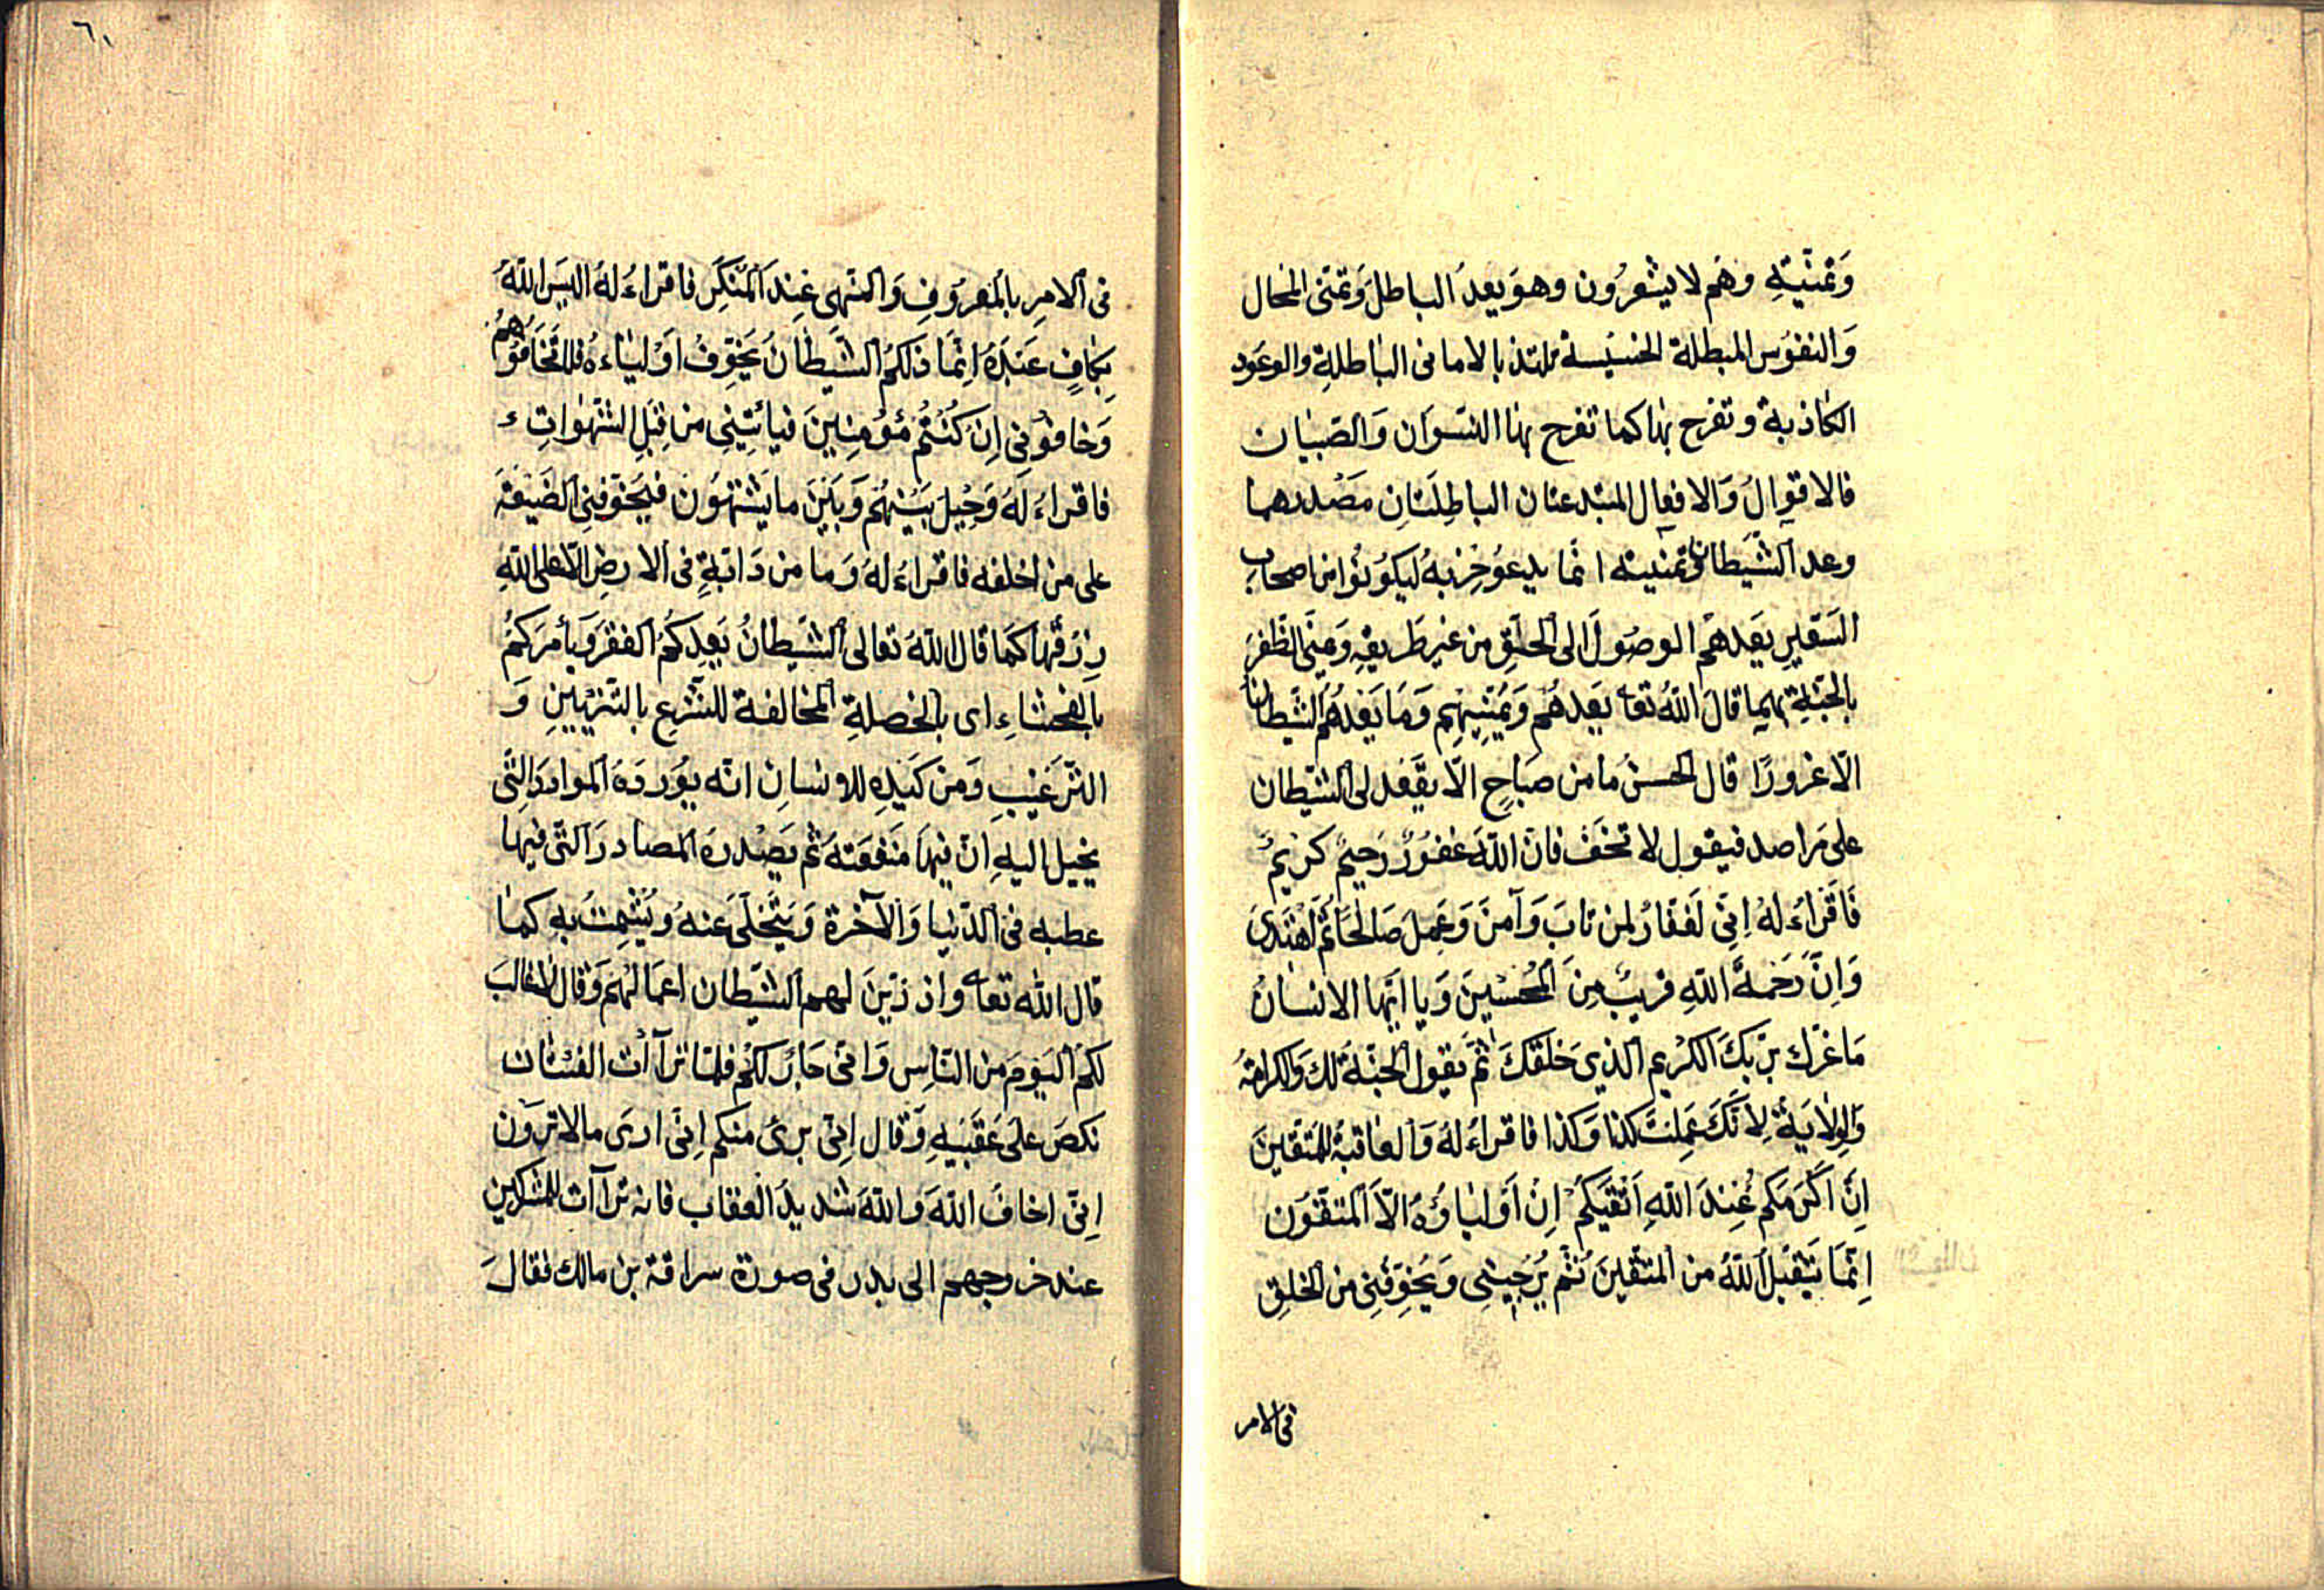 وَتمنّيتِهِ وهَم لا يشعرُون وهوَ يعدُ الباطلَ وَتمنّى المحال
وَالنفوُس المبطلة الخسيسة تلتذ بالامانى الباطلةِ والوعود
الكاذبة وتفرح بها كما تفرح بها النسوان وَالصّبيان
فالاقوالُ وَالافعال المبتدعتان الباطِلَتانِ مَصْدرهما
وعد الشّيَطان وتمنيته انّما يدعوُ حِزبهُ ليكوُنوُا من اصحابِ
السَعيرِ يعَدهمُ الوصُولَ الى الحقِ من غير طَريقِهِ وَيمنّى الظّفرَ
بالجنّةِ كما قالَ اللهُ تعا يَعَدهُم وَيُمَنّيِهم وَمَا يَعَدهُمُ الشّيطان
الّا غرورًا قال الحسنُ ما من صبَاحٍ الّا يقّعد لى الشّيطان
على مَراصد فيقول لا تخفَ فانّ اللهَ غفوُرٌ رَحيمٌ كريمٌ
فَاقراءُ لهُ اِنّى لَغفّارٌ لِمن تابَ وَآمنَ وَعَمِلَ صَالحًا ثمّ اهْتدىَ
وَاِنّ رَحَمةَ اللهِ قريبٌ مِنَ المُحُسْنيِنَ وَيا ايّها الانسانُ
مَا غرّك برّبكَ الكرْيِم الّذيِ خلقكَ ثمَّ يقول الجنّةُ لك وَالكرامَةُ
وَالولايَةُ لِاَنّكَ عَمِلْتَ كذا وَكذا فاقراءُ لهُ وَالعاقبةُ للمتقّينَ
اِنّ اَكرَمَكم عُندَ اللهِ اَتقيكم اِنْ اَوليَاؤُهُ الّا المتّقوُن
اِنّمَا يَتقبّلُ اللهُ من المتّقينَ ثُمّ يُرَجيِنىِ وَيُخوِّفنِى من الخلقِ
فى الامر
٦١
فى الامرِ بالمَعرُوفِ وَالنهىِ عَنِد المُنكِرَ فاقراءُ لهُ اليسَ اللهُ
بِكافٍ عَبَدهُ اِنّمَا ذلكُمُ الشّيطَانُ يُخوّفُ اَوْليَاءهُ فلا تَخَافُوُهُمُ
وَخافوُنِى اِنَ كُنْتُم مُؤمِنينَ فيأتِينِى من قِبَلِ الشهَواتِ
فاقراءُ لهُ وَحِيلَ بَيْنهُم وَبَيْنَ ما يَشْتهوُن فيخَوفنِى الضَيْعَةَ
على من اخلفه فاقراءُ لهُ وَما من دَابّةٍ فى الارضِ الّا على اللهِ
رِزقُها كمَا قالَ اللهُ تعالى الشّيَطانُ يَعِدكمُ الفقرَ وَيأمركُم
بالفحشاءِ اى بالخصلةِ المخالفة للشرعِ بالتزيينِ وَ
الترغيبِ وَمن كَيَدِهِ للانسانِ انّه يوُردهُ الموارد التى
يخيل اليهِ انّ فيها مَنفعَتهُ ثم يصَدرهُ المصادرَ التّى فيها
عطبه فى الدّنيا وَالآخرة وَيَتّخلّى عنهُ ويُشْمِتُ بهِ كما
قال الله تعا واذ زيّنَ لهم الشيّطان اعمَالَهُم وَقال لا غالبَ
لكمُ اليَومَ من النّاسِ وَانّى جَارٌ لكُمُ فلمّا ترآأت الفئتان
نكصَ على عَقبَيهِ وَقال اِنّى برئٌ منكم اِنّى ارىَ مالا ترَون
اِنّى اخافُ اللهَ واللهَ شديدُ العقاب فانه ترآآت للمشركين
عند خروجهم الى بدر فى صورة سراقة بن مالك فقالَ